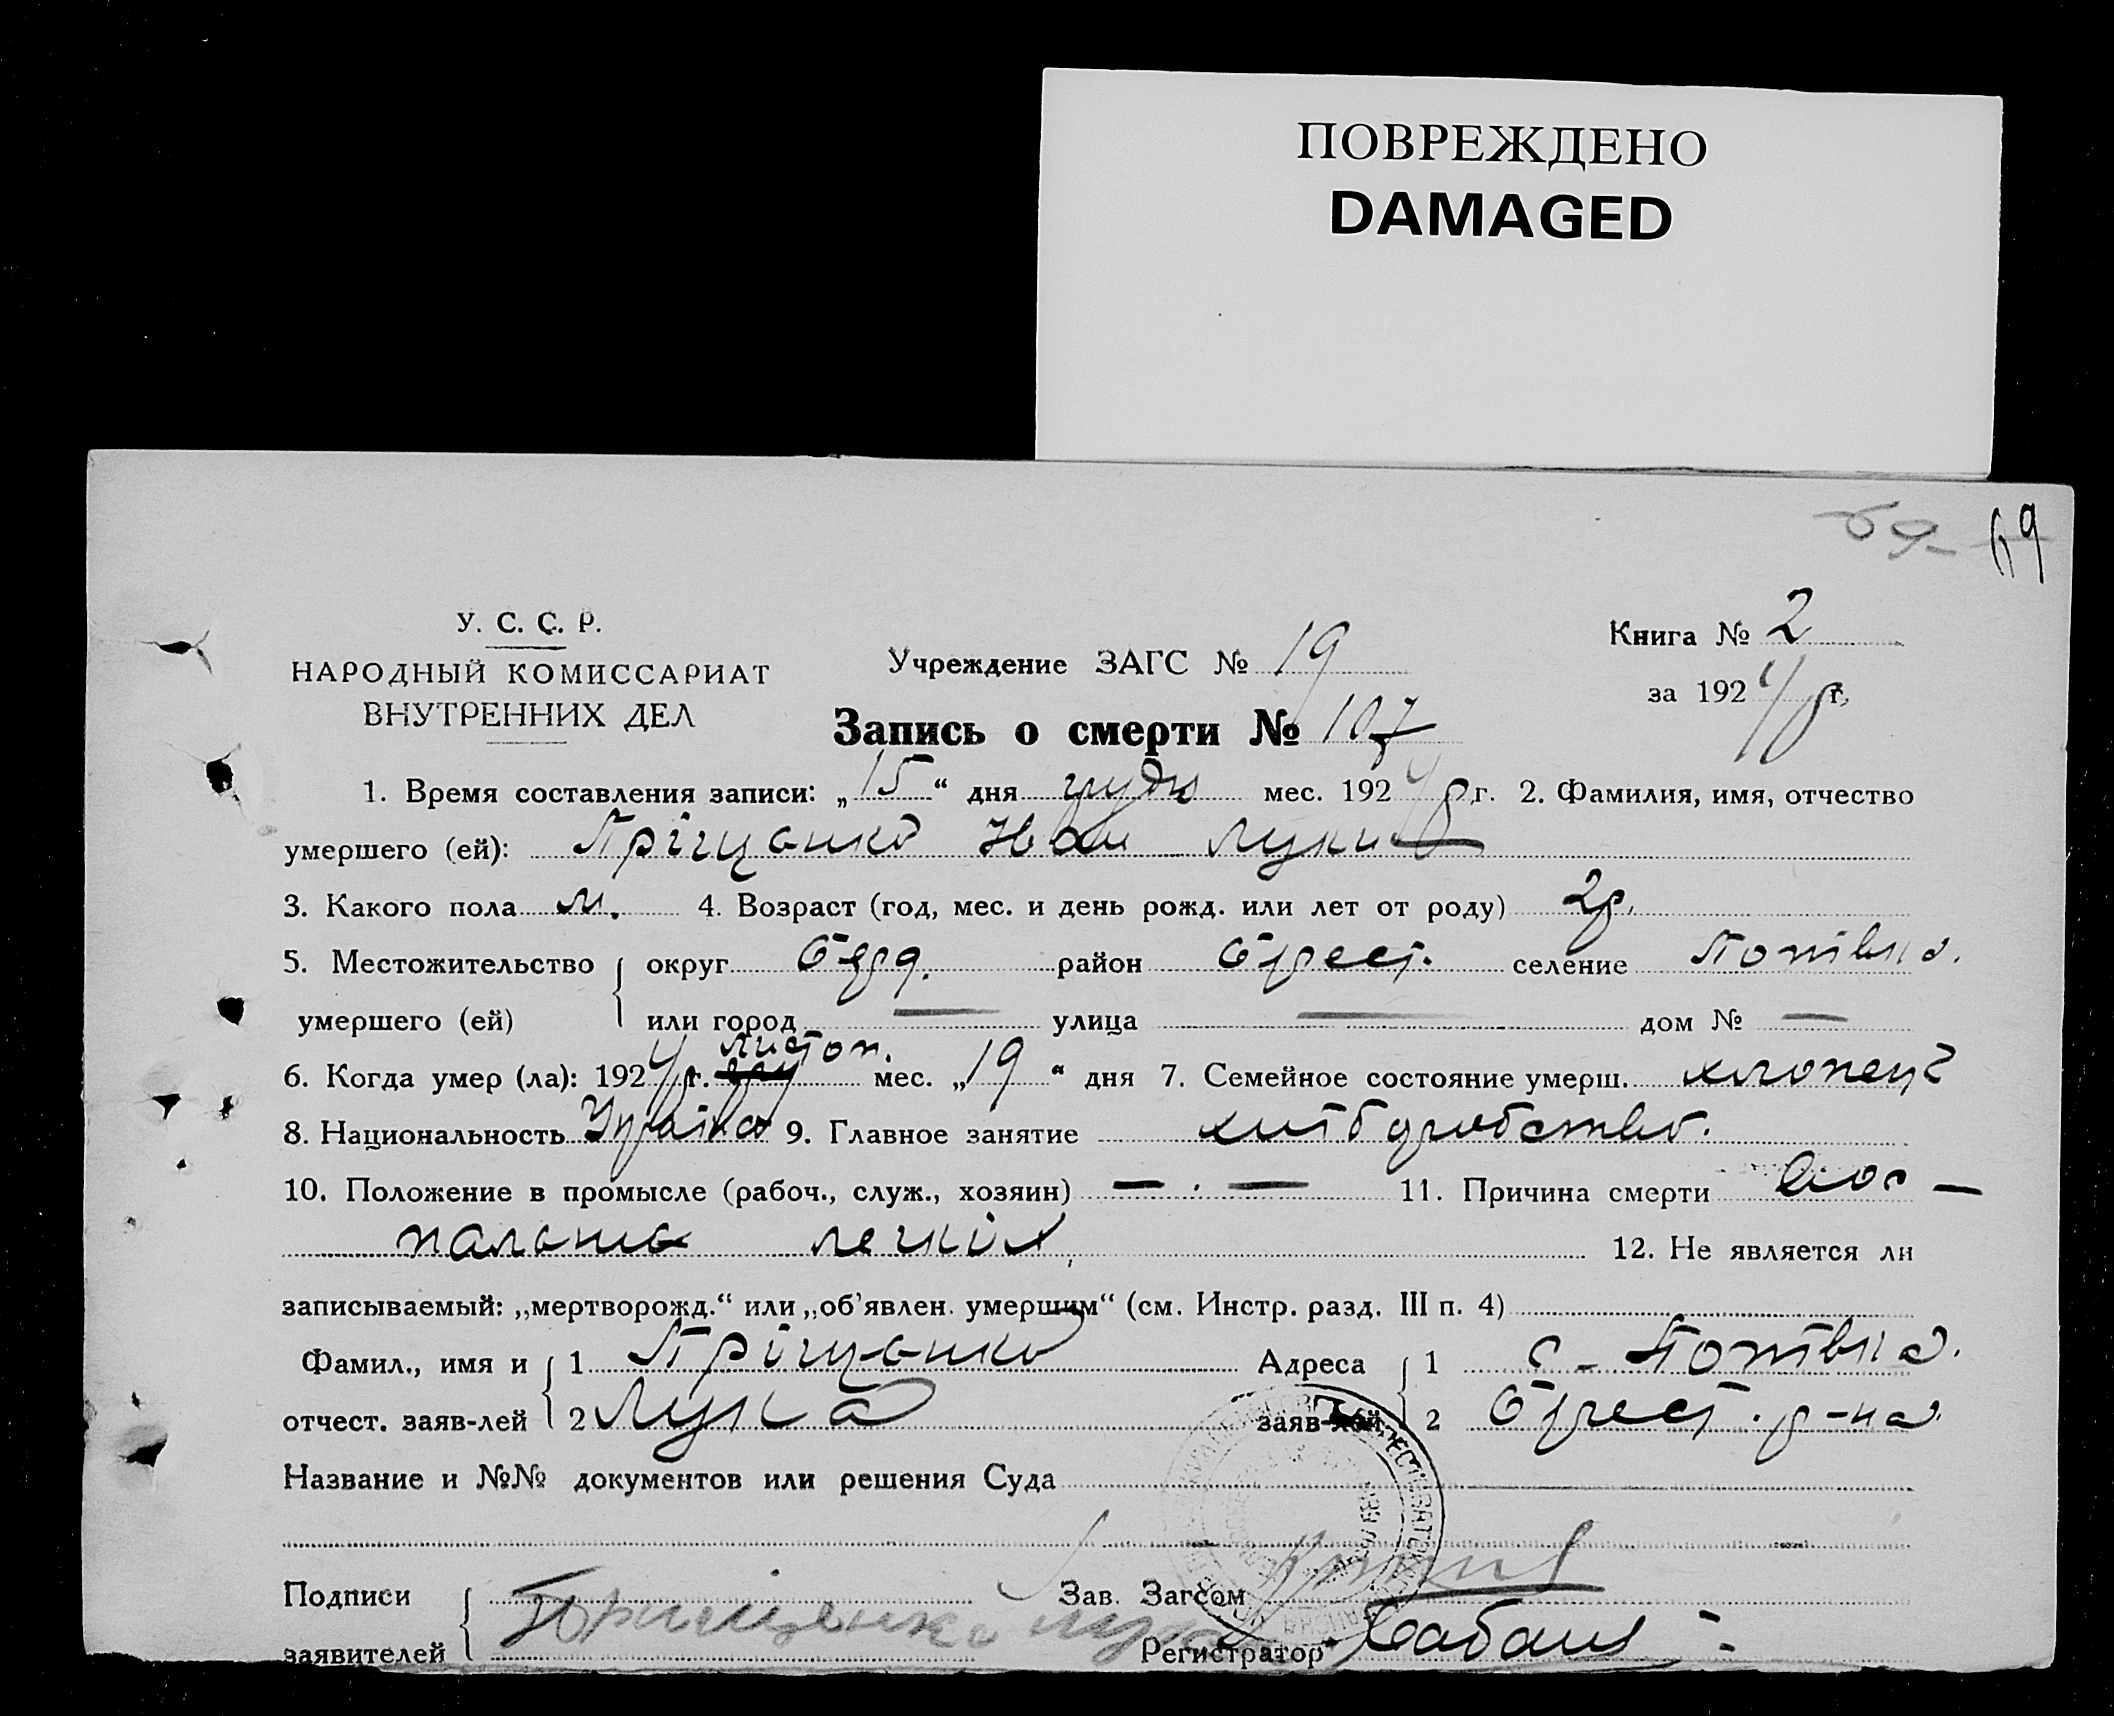 ПОВРЕЖДЕНО
DAMAGED
69
У. С. С. Р.
НАРОДНЫЙ КОМИССАРИАТ
ВНУТРЕННИХ ДЕЛ
Учреждение ЗАГС № 19
Книга № 2
за 192 4/р г.
Запись о смерти № 107
1. Время составления записи: „15“ дня грудю мес. 192 4/р г. 2. Фамилия, имя, отчество
умершего (ей): Пріщанко Иван Луки
3. Какого пола м. 4. Возраст (год, мес. и день рожд. или лет от роду) 2р.
5. Местожительство округ Берд. район Брест. селение Потівка.
умершего (ей) или город — улица — дом № —
6. Когда умер (ла): 192 4/р г. листоп. мес. „19“ дня 7. Семейное состояние умерш. хлопець
8. Национальность Україн 9. Главное занятие хліборобство.
10. Положение в промысле (рабоч., служ., хозяин) — . — 11. Причина смерти воо —
паленна легких, 12. Не является ли
записываемый: „мертворожд.“ или „об’явлен. умершим“ (см. Инстр. разд. III п. 4)
Фамил., имя и 1 Пріщанко Адреса 1 с - Потівка.
отчест. заяв-лей 2 Лука заяв-лей 2 Брест. р-на.
Название и №№ документов или решения Суда
Подписи Прищенко Зав. Загсом
заявителей Регистратор Бабаш